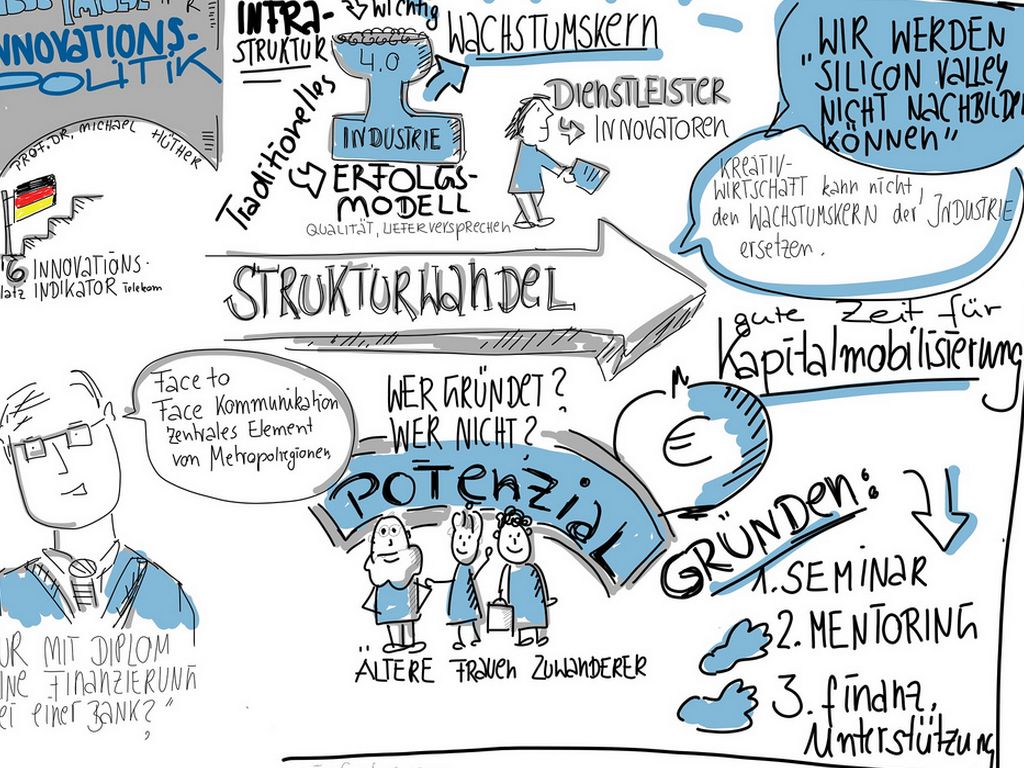 INNOVATIONS-
POLITIK
PROF. DR. MICHAEL HÜTHER
INFRA-
STRUKTUR
wichtig
WACHSTUMSKERN
4.0
INDUSTRIE
Traditionelles
ERFOLGS-
MODELL
QUALITÄT, LIEFERVERSPRECHEN
DIENSTLEISTER
INNOVATOREN
"WIR WERDEN
SILICON VALLEY
NICHT NACHBILDEN
KÖNNEN"
KREATIV-
WIRTSCHAFT kann nicht,
den WACHSTUMSKERN der INDUSTRIE
ersetzen.
6 INNOVATIONS-
INDIKATOR Telekom
STRUKTURWANDEL
gute Zeit für
Kapitalmobilisierung
€
Face to
Face Kommunikation
zentrales Element
von Metropolregionen
WER GRÜNDET?
WER NICHT?
POTENZIAL
ÄLTERE FRAUEN ZUWANDERER
GRÜNDEN:
1. SEMINAR
2. MENTORING
3. finanz.
Unterstützung
UR MIT DIPLOM
INE FINANZIERUNG
ei einer BANK?"